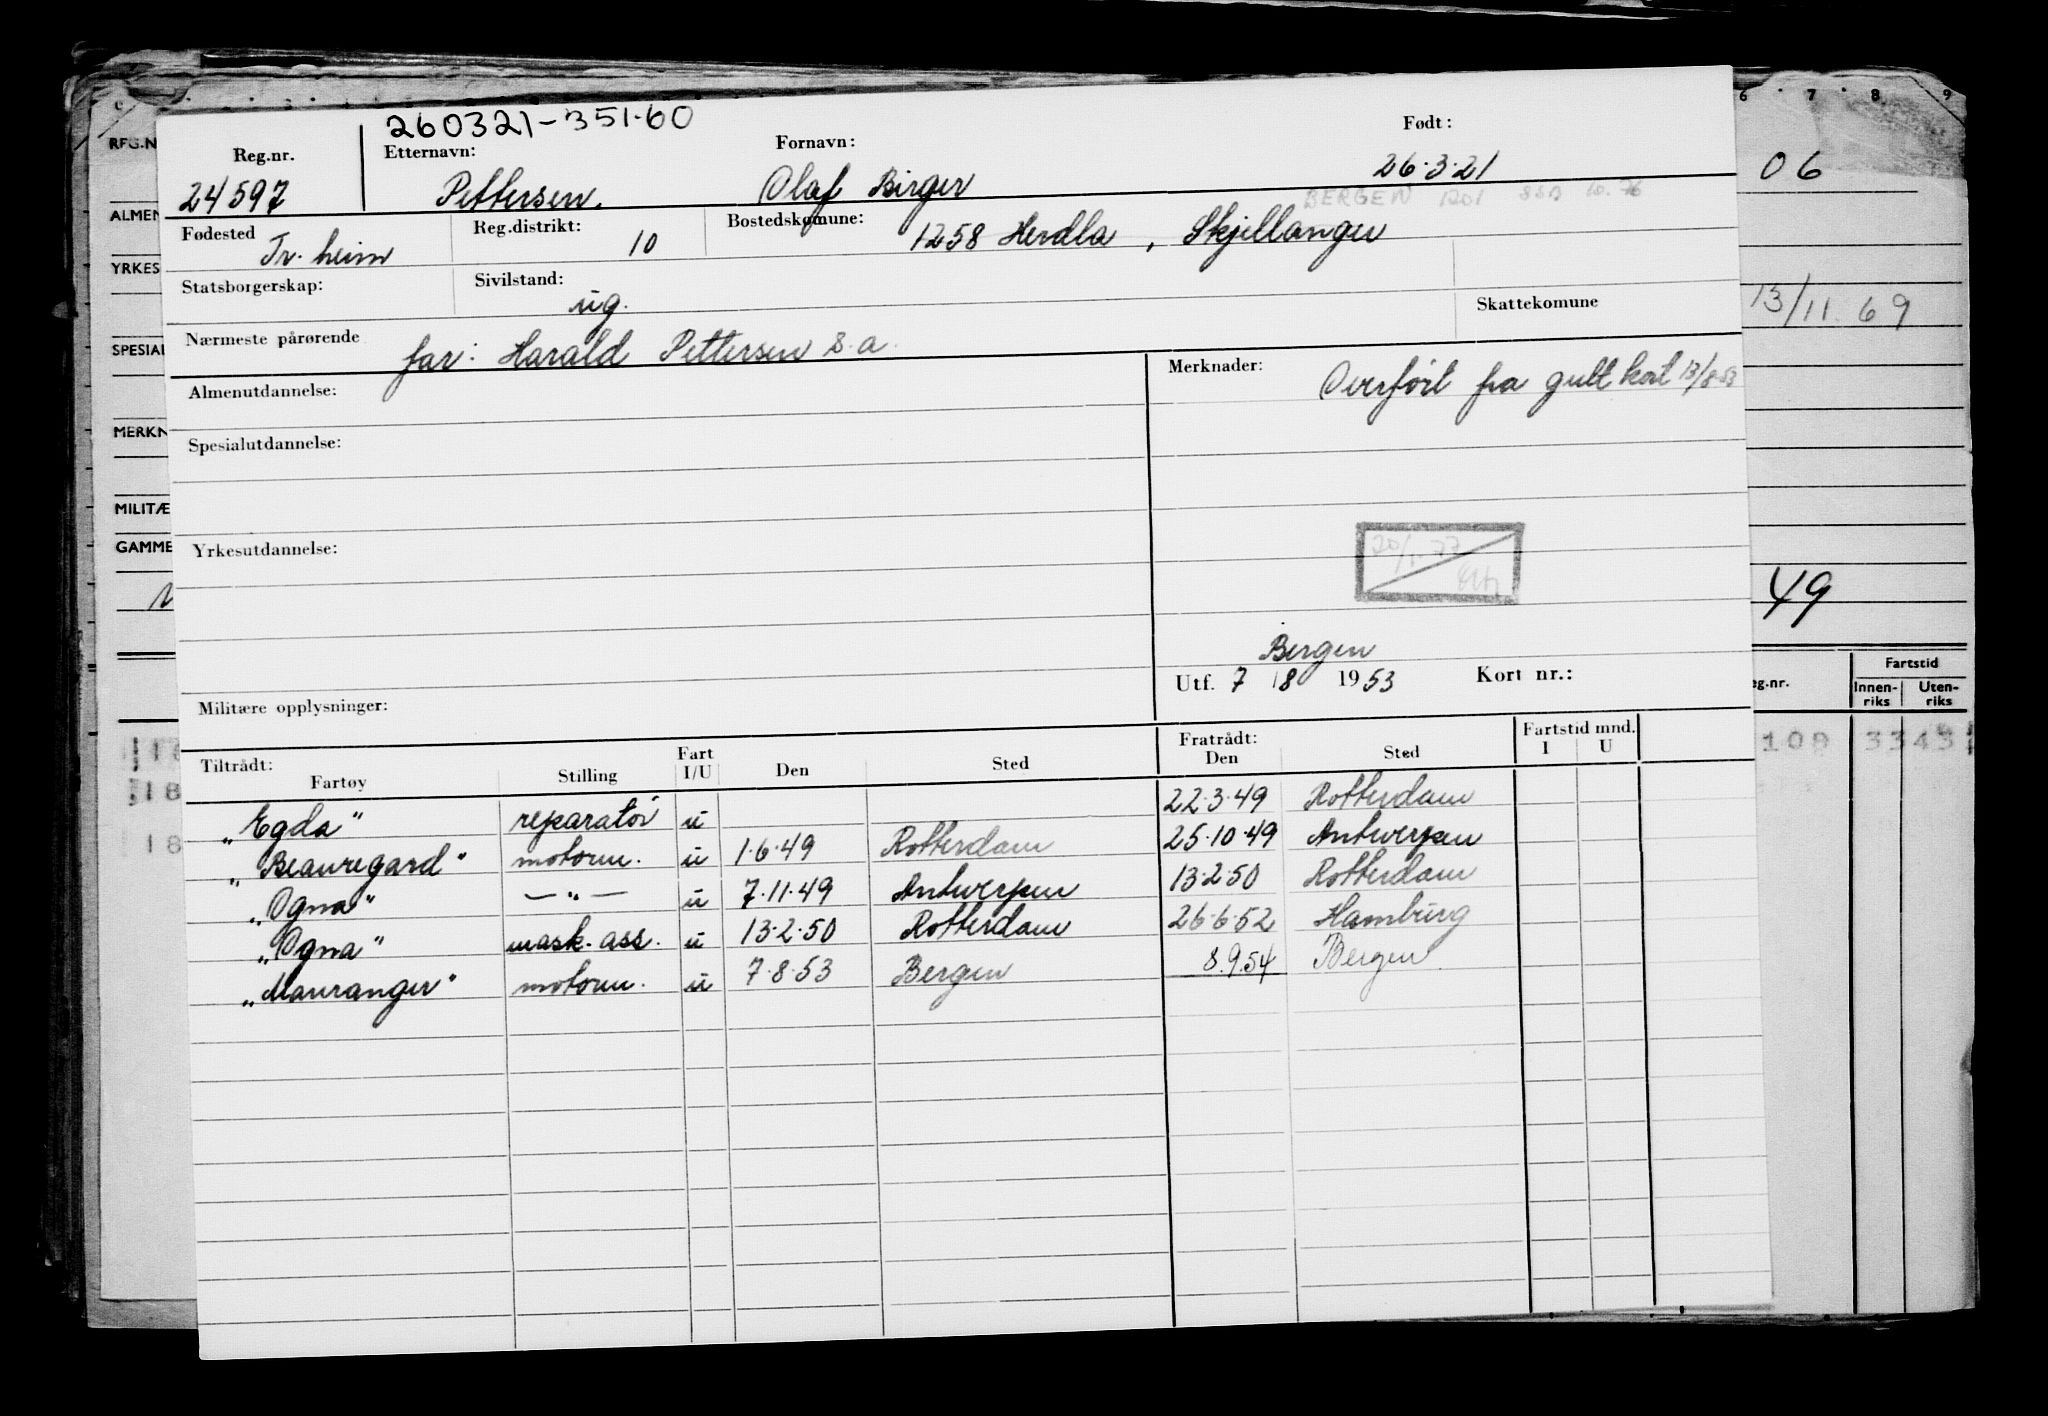 260321-351.60
Reg.nr. Etternavn: Fornavn: Født:
24597 Pettersen. Olaf Birger 26.3.21
BERGEN 1201
Fødested Tr.heim Reg.distrikt: 10 Bostedskomune: 1258 Herdla, Skjellanger
Statsborgerskap: Sivilstand: ug. Skattekomune
Nærmeste pårørende far: Harald Pettersen s.a.
Almenutdannelse: Merknader: Overført fra gult kort 13/8-53
Spesialutdannelse:
Yrkesutdannelse: 20/1-77
Bergen
Utf. 7 / 8 1953 Kort nr.:
Militære opplysninger:
Tiltrådt: Fart Fratrådt: Fartstid mnd.
Fartøy Stilling I/U Den Sted Den Sted I U
"Egda" reparatør u 22.3.49 Rotterdam
"Beauregard" motorm. u 1.6.49 Rotterdam 25.10.49 Antwerpen
"Ogna" —"— u 7.11.49 Antwerpen 13.2.50 Rotterdam
"Ogna" mask.ass. u 13.2.50 Rotterdam 26.6.52 Hamburg
"Mauranger" motorm. u 7.8.53 Bergen 8.9.54 Bergen
C 6 7 8 9
REG.N 06
ALMEN
YRKES 13/11.69
SPESIAL
MERKN
MILITÆ
GAMME
49
eg.nr. Fartstid
Innen-riks Uten-riks
108 3343
18
18